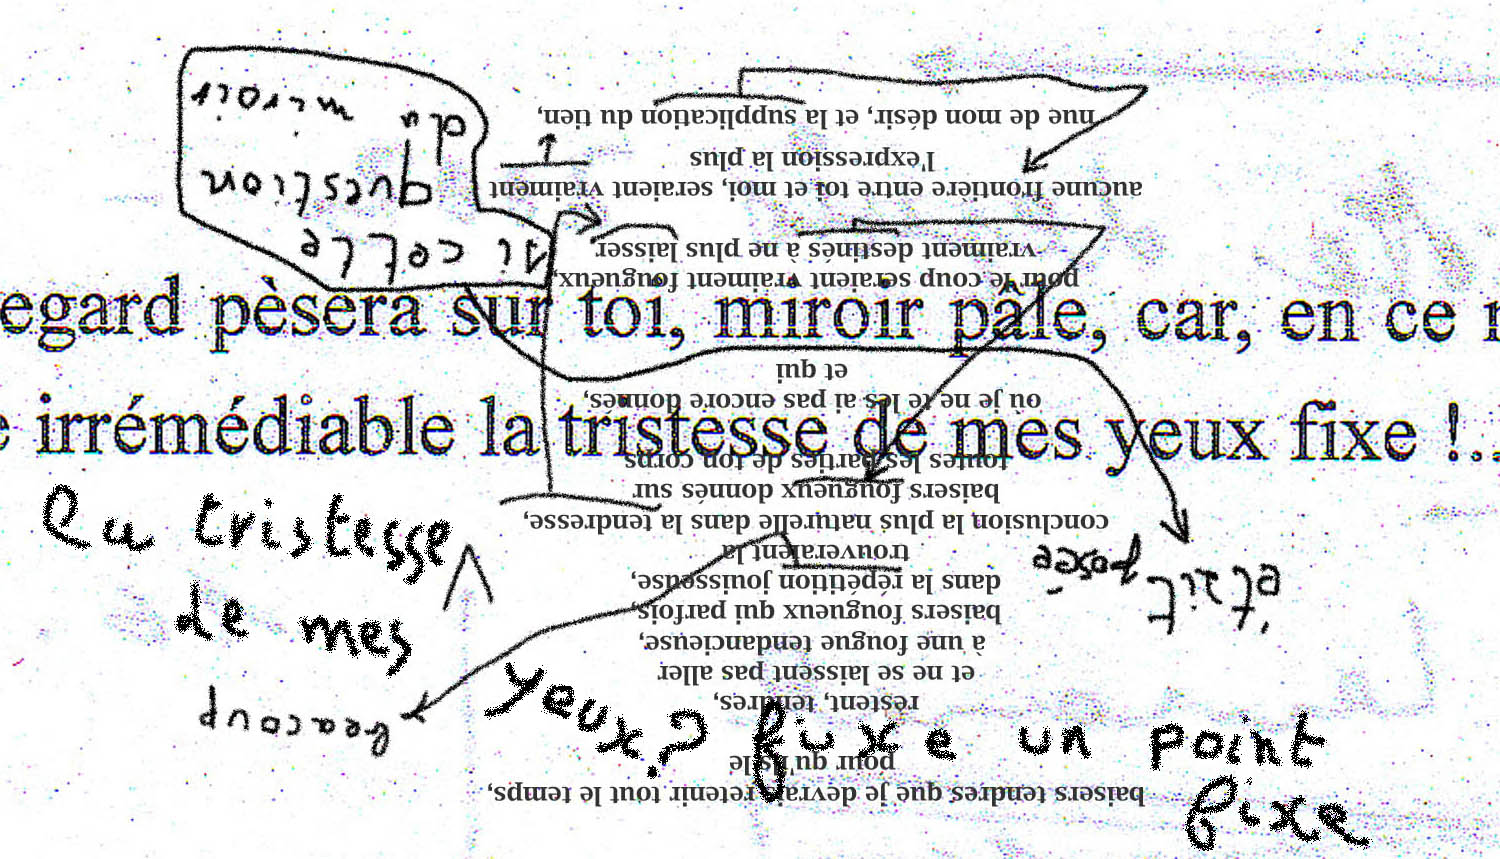 egard pèsera sur toi, miroir pâle, car, en ce
irrémédiable la tristesse de mes yeux fixe !..
la tristesse
de mes
yeux? fixe un point
fixe
baisers tendres que je devrais retenir tout le temps,
pour qu'ils le
restent, tendres,
et ne se laissent pas aller
à une fougue tendancieuse,
baisers fougueux qui parfois,
dans la répétition jouisseuse,
trouveraient la
conclusion la plus naturelle dans la tendresse,
baisers fougueux donnés sur
toutes les parties de ton corps
où je ne te les ai pas encore donnés,
et qui
pour le coup seraient vraiment fougueux,
vraiment destinés à ne plus laisser
aucune frontière entre toi et moi, seraient vraiment
l'expression la plus
nue de mon désir, et la supplication du tien,
si cette
question
du miroir
était posée
beaucoup